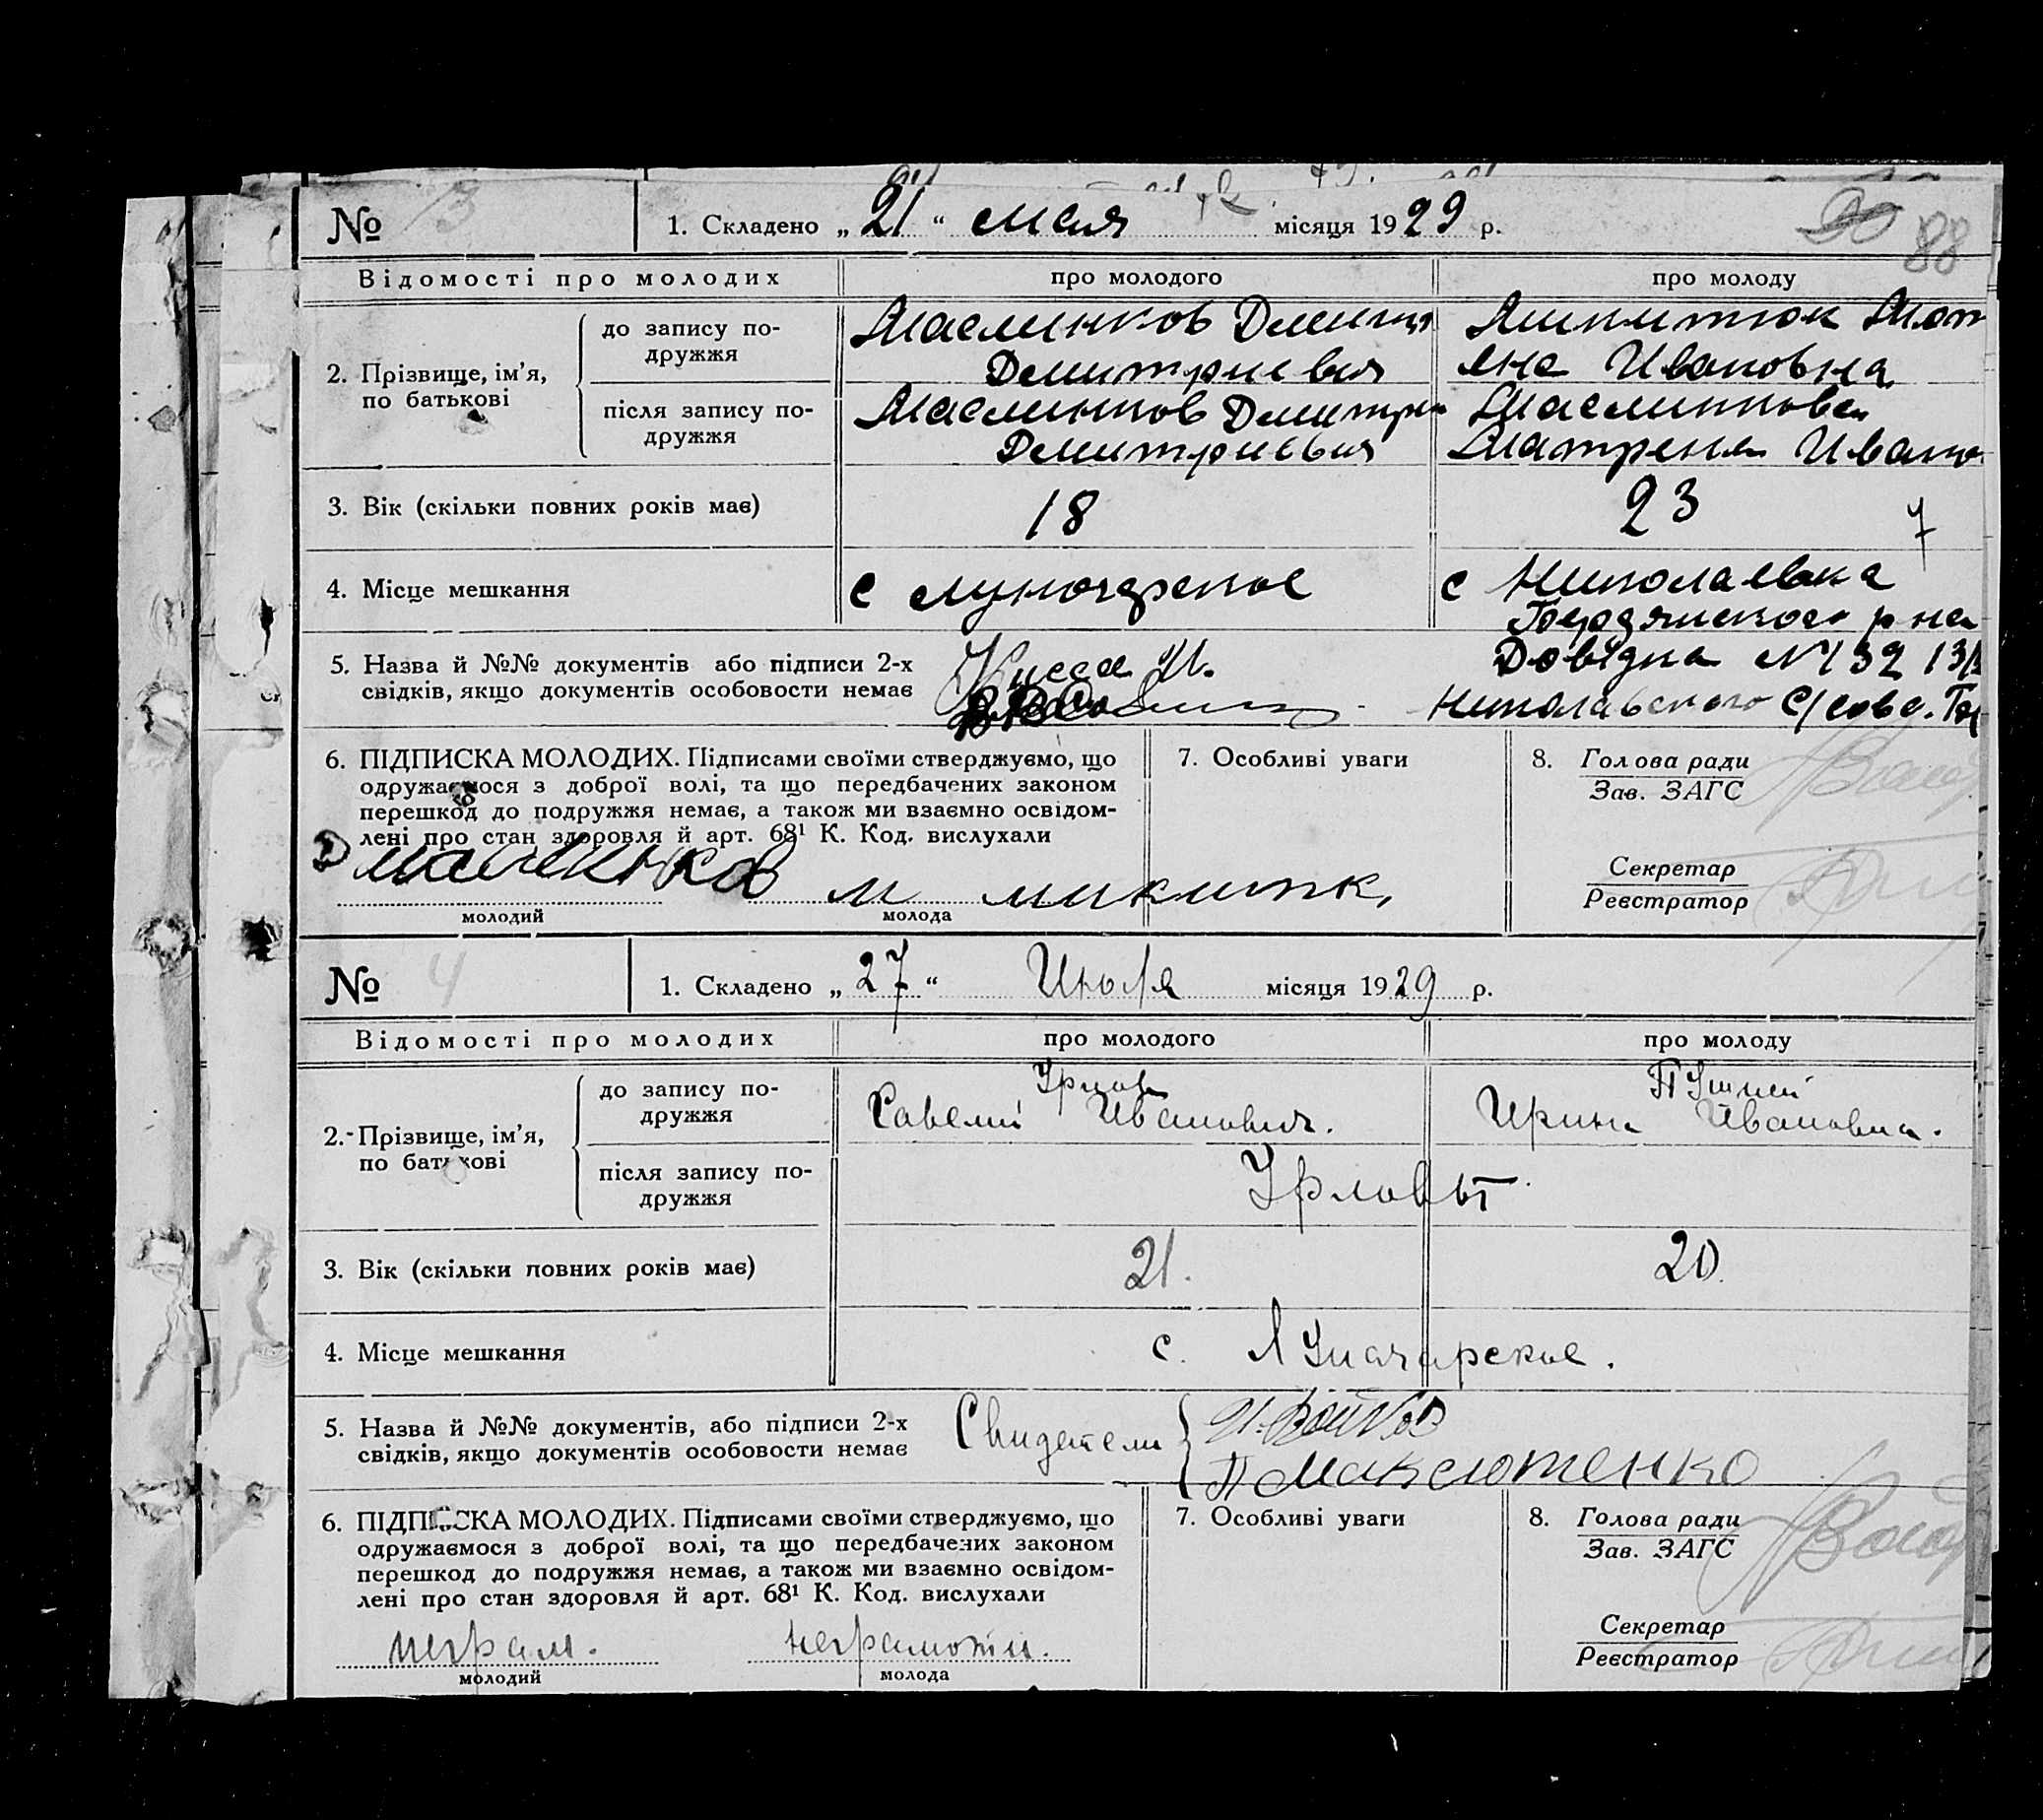 № 13
1. Складено „ 21 “ мая місяця 1929 р.
88
Відомості про молодих
про молодого
про молоду
2. Прізвище, ім’я, по батькові
до запису подружжя
Маслинков Дмитри
Дмитриевич
Микитюк Мот
Ивановна
після запису подружжя
Маслинков Дмитри
Дмитриевич
Маслинкова
Матрена Ивано
3. Вік (скільки повних років має)
18
23
4. Місце мешкання
с Луночарское
с Николаевка
Бердянского р на
5. Назва й №№ документів або підписи 2-х
свідків, якщо документів особовости немає
Кисса И.
Довідка № 132 13/
Николавского С/совд.
6. ПІДПИСКА МОЛОДИХ. Підписами своїми стверджуємо, що
одружаємося з доброї волі, та що передбачених законом
перешкод до подружжя немає, а також ми взаємно освідом-
лені про стан здоровля й арт. 68¹ К. Код. вислухали
Д Маслинков
м микитюк
молодий
молода
7. Особливі уваги
8. Голова ради
Зав. ЗАГС
Секретар
Реєстратор
№ 4
1. Складено „ 27 “ Июля місяця 1929 р.
Відомості про молодих
про молодого
про молоду
2. Прізвище, ім’я, по батькові
до запису подружжя
Савелий Иванович.
Ирина Ивановна.
після запису подружжя
Урловы
3. Вік (скільки повних років має)
21.
20.
4. Місце мешкання
с. Луначарское.
5. Назва й №№ документів, або підписи 2-х
свідків, якщо документів особовости немає
Свидетели
И. Войков
П Максютенко
6. ПІДПИСКА МОЛОДИХ. Підписами своїми стверджуємо, що
одружаємося з доброї волі, та що передбачених законом
перешкод до подружжя немає, а також ми взаємно освідом-
лені про стан здоровля й арт. 68¹ К. Код. вислухали
неграм.
неграмотн.
молодий
молода
7. Особливі уваги
8. Голова ради
Зав. ЗАГС
Секретар
Реєстратор